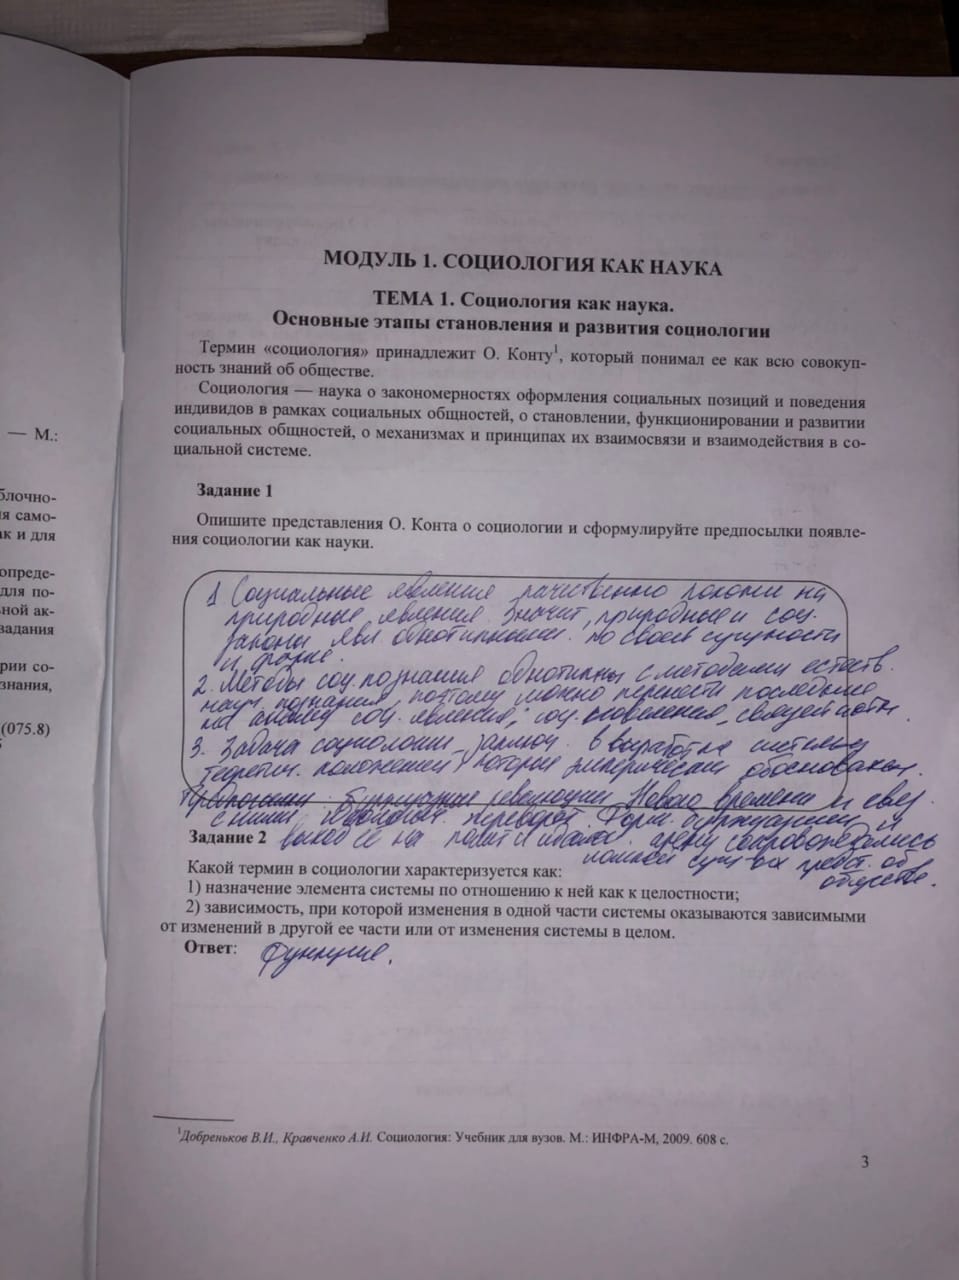 — М.:
блочно-
ия само-
ак и для
опреде-
для по-
ной ак-
задания
рии со-
знания,
(075.8)
МОДУЛЬ 1. СОЦИОЛОГИЯ КАК НАУКА
ТЕМА 1. Социология как наука.
Основные этапы становления и развития социологии
Термин «социология» принадлежит О. Конту1, который понимал ее как всю совокуп-
ность знаний об обществе.
Социология — наука о закономерностях оформления социальных позиций и поведения
индивидов в рамках социальных общностей, о становлении, функционировании и развитии
социальных общностей, о механизмах и принципах их взаимосвязи и взаимодействия в со-
циальной системе.
Задание 1
Опишите представления О. Конта о социологии и сформулируйте предпосылки появле-
ния социологии как науки.
1 Социальные явления качественно похожи на
природные явления значит, природные и соц.
законы явл однотипными по своей сущности
и форме.
2. Методы соц. познания однотипны с методами естеств.
науч. познания, поэтому можно перенести последние
на анализ соц. явления,
3. Задача социологии заключ. в выработке системы
теоретич. положений, которые эмпирически обоснованы.
Предпосылки: буржуазные революции Нового времени и связ.
с ними переворот. Форм. буржуазии и
выход её на полит и арену сопровождались
ломкой сущ-их предст. об
обществе.
Задание 2
Какой термин в социологии характеризуется как:
1) назначение элемента системы по отношению к ней как к целостности;
2) зависимость, при которой изменения в одной части системы оказываются зависимыми
от изменений в другой ее части или от изменения системы в целом.
Ответ: Функция.
1Добреньков В.И., Кравченко А.И. Социология: Учебник для вузов. М.: ИНФРА-М, 2009. 608 с.
3